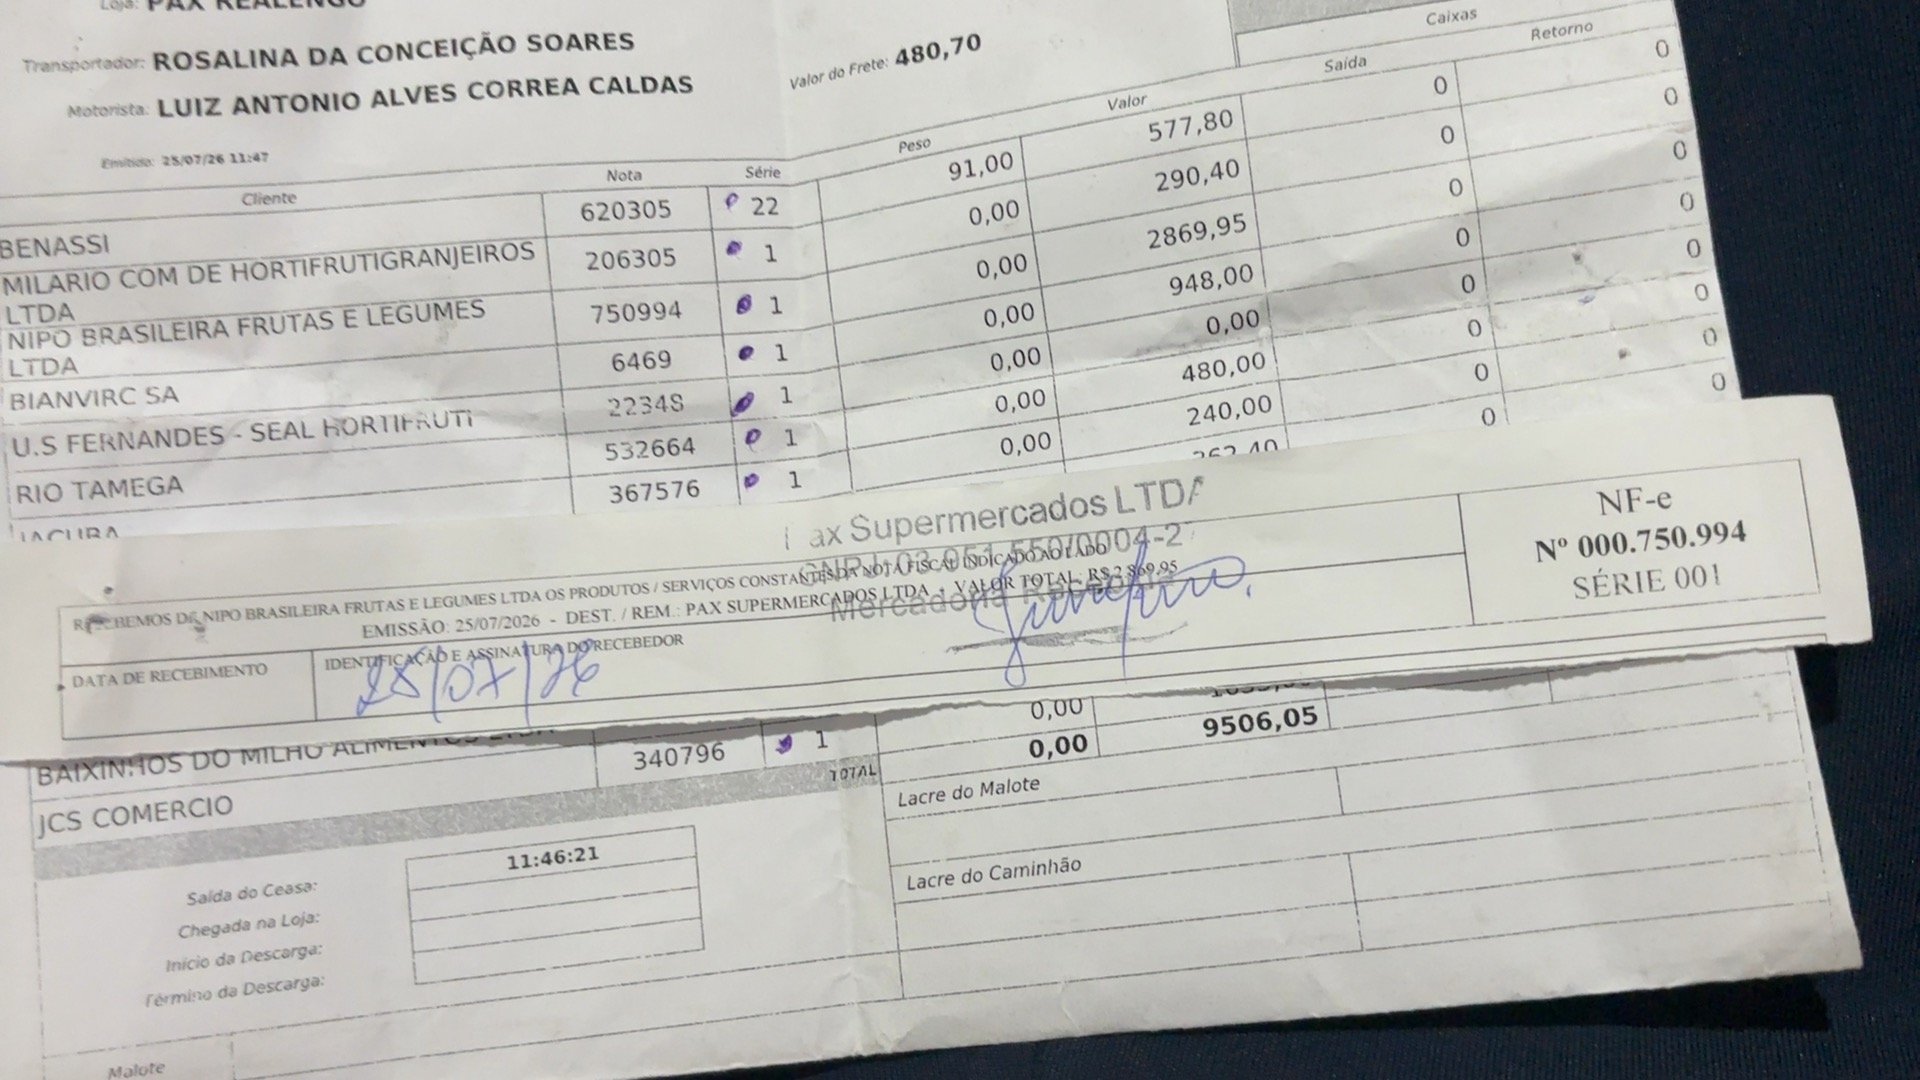 Loja: PAX REALENGO
Transportador: ROSALINA DA CONCEIÇÃO SOARES
Motorista: LUIZ ANTONIO ALVES CORREA CALDAS
Valor do Frete: 480,70
Emitido: 25/07/26 11:47
Caixas
Cliente Nota Série Peso Valor Saída Retorno
BENASSI 620305 22 91,00 577,80 0 0
MILARIO COM DE HORTIFRUTIGRANJEIROS LTDA 206305 1 0,00 290,40 0 0
NIPO BRASILEIRA FRUTAS E LEGUMES LTDA 750994 1 0,00 2869,95 0 0
BIANVIRC SA 6469 1 0,00 948,00 0 0
U.S FERNANDES - SEAL HORTIFRUTI 22348 1 0,00 0,00 0 0
RIO TAMEGA 532664 1 0,00 480,00 0 0
367576 1 0,00 240,00 0 0
262,40 0 0
Pax Supermercados LTDA
RECEBEMOS DE NIPO BRASILEIRA FRUTAS E LEGUMES LTDA OS PRODUTOS / SERVIÇOS CONSTANTES DA NOTA FISCAL INDICADO AO LADO
EMISSÃO: 25/07/2026 - DEST. / REM.: PAX SUPERMERCADOS LTDA - VALOR TOTAL: R$ 2.869,95
DATA DE RECEBIMENTO
IDENTIFICAÇÃO E ASSINATURA DO RECEBEDOR
25/07/26
NF-e
Nº 000.750.994
SÉRIE 001
BAIXINHOS DO MILHO ALIMENTOS LTDA
0,00
JCS COMERCIO 340796 1
TOTAL 0,00 9506,05
Saída do Ceasa: 11:46:21
Chegada na Loja:
Início da Descarga:
Término da Descarga:
Lacre do Malote
Lacre do Caminhão
Malote